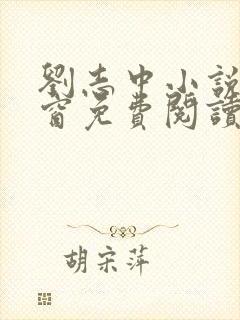 劉志中小説
窗免費閱讀
胡宗萍